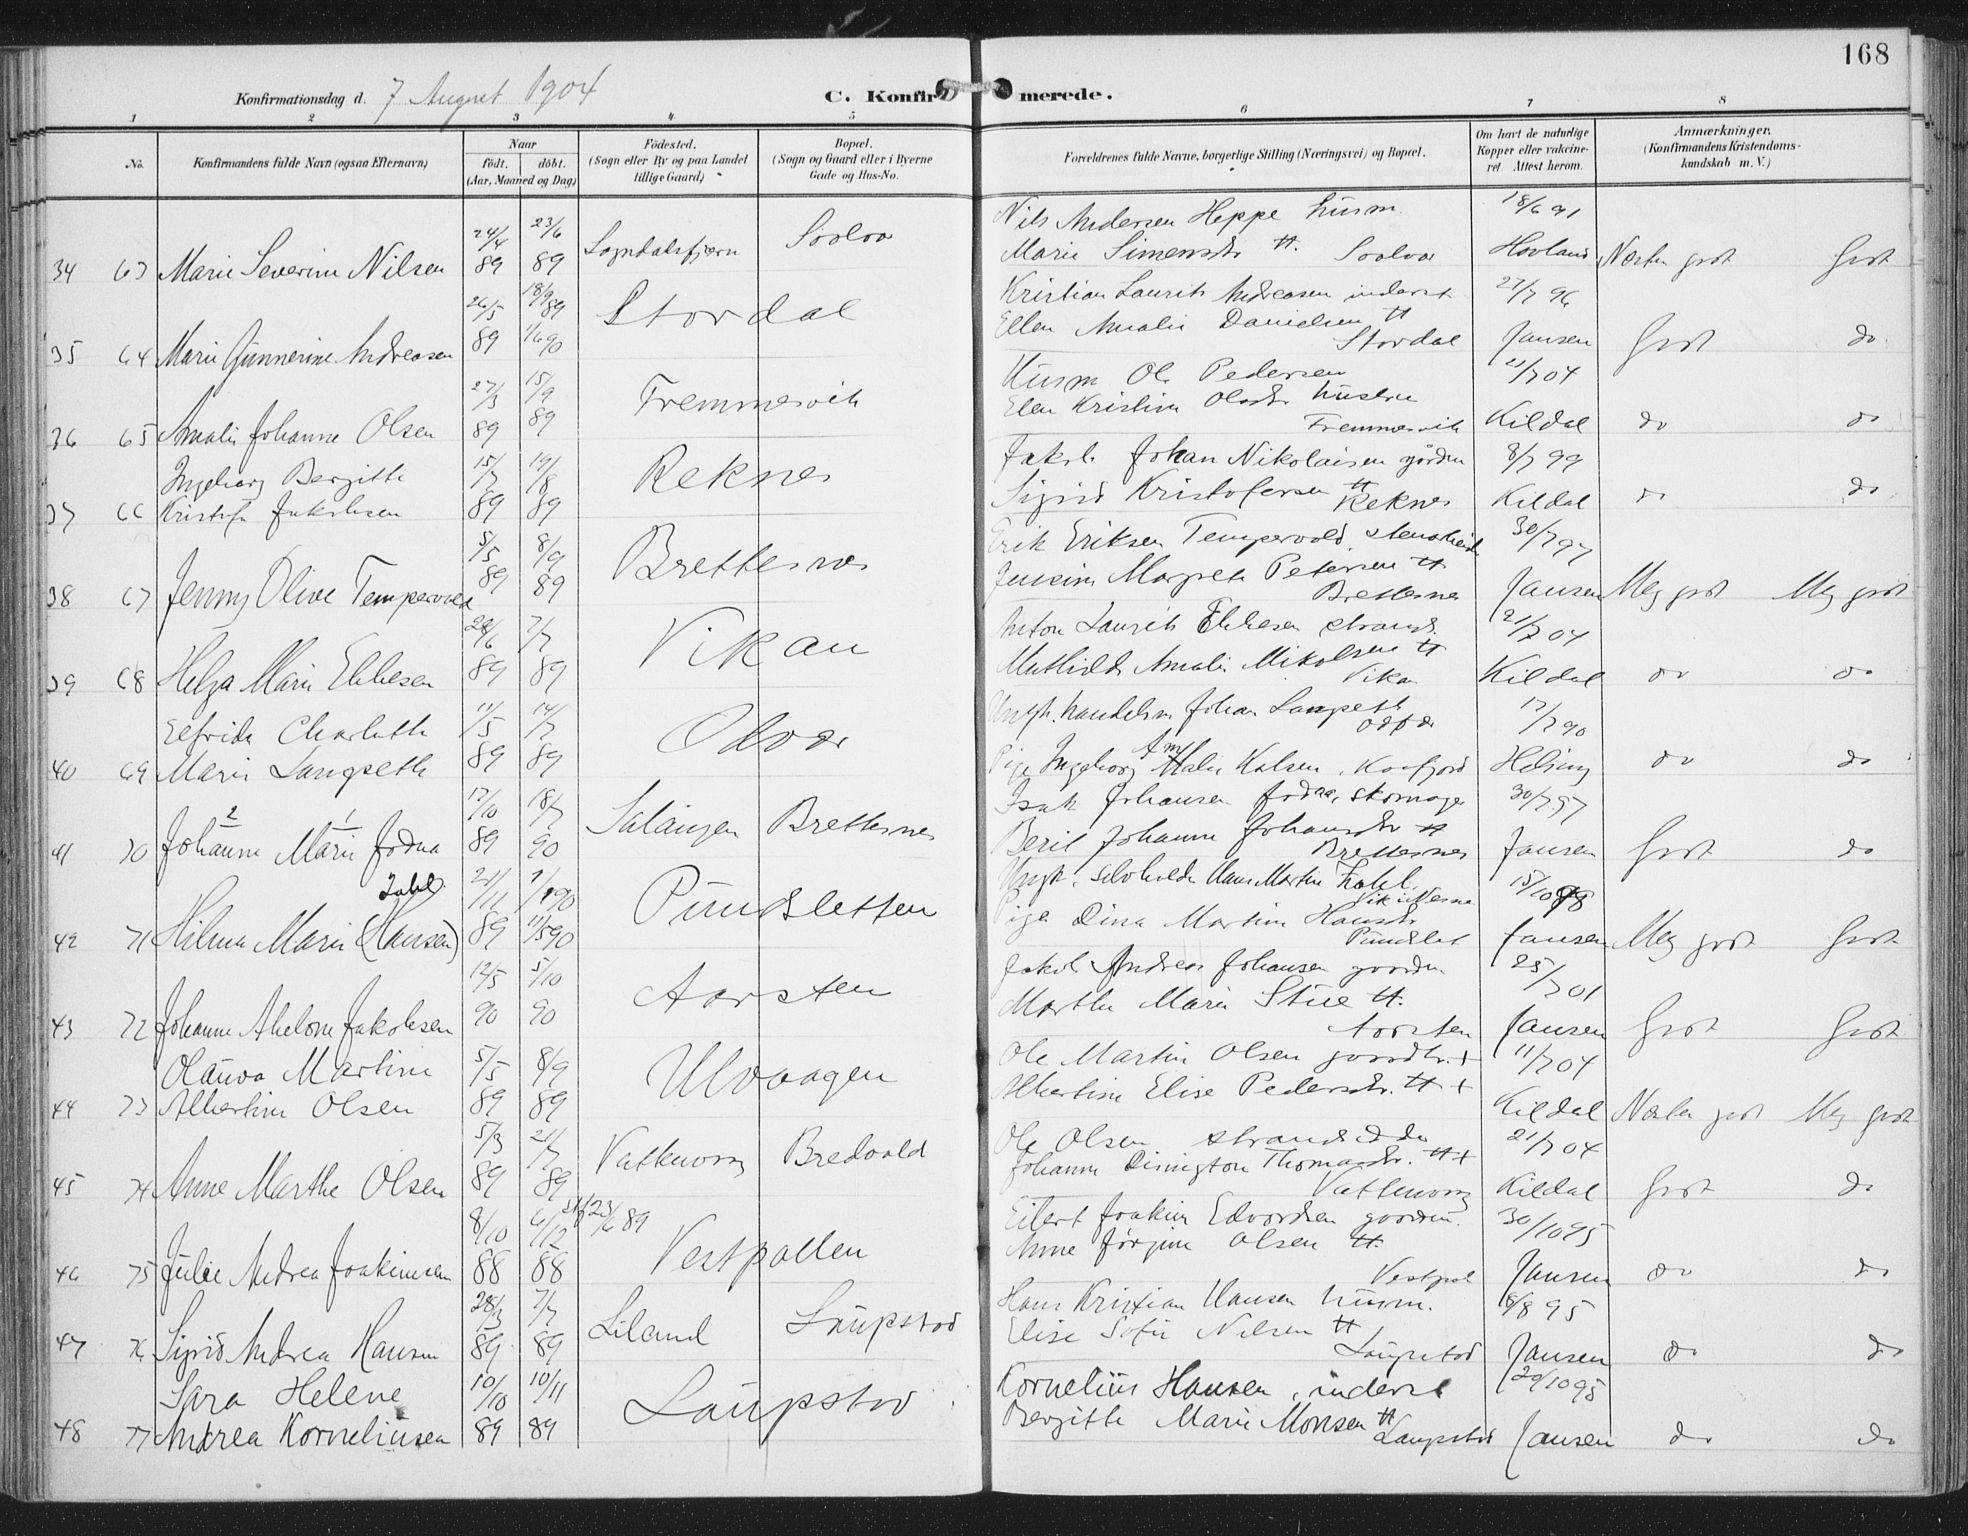 168
Konfirmationsdag d. 7 August 1904
C. Konfirmerede.
1 2 3 4 5 6 7 8
No.
Konfirmandens fulde Navn (ogsaa Efternavn)
Naar
født. døbt.
(Aar, Maaned og Dag)
Fødested.
(Sogn eller By og paa Landet
tillige Gaard)
Bopæl.
(Sogn og Gaard eller i Byerne
Gade og Hus-No.
Forældrenes fulde Navne, borgerlige Stilling (Næringsvei) og Bopæl.
Om havt de naturlige
Kopper eller vakcine-
ret Attest herom.
Anmærkninger.
(Konfirmandens Kristendoms-
kundskab m. V.)
Nils Andersen Heppe husm. 18/6 91
24/4 23/6
34 63 Marie Severine Nilsen 89 89 Sogndalsfjern Svolvær Marie Simensdr tt. Svolvær Hovland Næsten godt Godt
Kristian Laurits Andreasen inderst 27/7 96
26/5 18/9 89 Stordal
Ellen Amalie Danielsen tt
35 64 Marie Gunnerine Andreasen 89 1/6 90 Stordal Jansen Godt do
Husm Ole Pedersen 21/7 04
27/3 15/9 Fremmervik
Elen Kristine Olsdr hustru
36 65 Amalie Johanne Olsen 89 89 Fremmervik Kildal do do
Jakob Johan Nikolaisen gårdm 8/7 99
Ingeborg Bergitte 15/7 19/8 Reknes
Sigrid Kristofersen tt Reknes
37 66 Kristofa Jakobsen 89 89 Kildal do do
Erik Eriksen Tempervold, stenarbeid 30/7 97
5/5 8/9 Brettesnes
Jensine Margrete Petersen tt
38 67 Jenny Olive Tempervold 89 89 Brettesnes Jansen Meg godt Meg godt
Anton Laurits Ebbesen strands. 21/7 04
28/6 7/7 Vikan
Mathilde Amalie Mikalsen tt
39 68 Helga Marie Ebbesen 89 89 Vikan Kildal do do
Ungk. handelsm Johan Langseth 17/7 90
Elfrida Charlotte 11/5 14/7 Odvær
40 69 Marie Langseth 89 89 Pige Ingeborg Amalie Kalsen, Korfjord Helsing do do
Isak Johansen Jodaa, skomager 30/7 97
17/10 18/7 Salangen Brettesnes
Beril Johanne Johansdr tt
41 70 Johanne Marie Jodaa 89 90 Brettesnes Jansen Godt do
2 1
Ungk. selvholder Hans Martin Zahl 15/10 98
Zahl 21/11 1/1 90 Pundsletten
Pige Dina Martine Hansdr
42 71 Hilma Marie (Hansen) 89 11/5 90 Pundslet Jansen Meg godt Godt
Jakob Andreas Johansen gaardm 25/7 01
12/5 5/10 Aarsten
Marthe Marie Stue tt.
43 72 Johanne Abelone Jakobsen 90 90 Aarsten Jansen Godt Godt
Ole Martin Olsen gaardbr. + 11/7 04
Olauva Martine 5/5 8/9 Ulvaagen
Albertine Elise Pedersdr. tt +
44 73 Albertine Olsen 89 89 Kildal Næsten godt Meg godt
Ole Olsen strandsidder 21/7 04
5/3 21/7 Vatterong Bredvold
Johanne Dinington Thomasdr. tt +
45 74 Anne Marthe Olsen 89 89 Vatterong Kildal Godt do
Eilert Joakim Edvardsen gaardm. 30/10 95
8/10 6/12 st 23/6 89 Vestpollen
Anne Jørgine Olsen tt.
46 75 Julie Andrea Joakimsen 88 88 Vestpol Jansen do do
Hans Kristian Hansen husm. 6/8 95
28/3 7/7 Liland Laupstad
Elise Sofie Nilsen tt
47 76 Sigrid Andrea Hansen 89 89 Laupstad Jansen do do
Sara Helene 10/10 10/11 Laupstad Kornelius Hansen, inderst 29/10 95
Bergitte Marie Monsen tt
48 77 Andrea Korneliusen 89 89 Laupstad Jansen do do